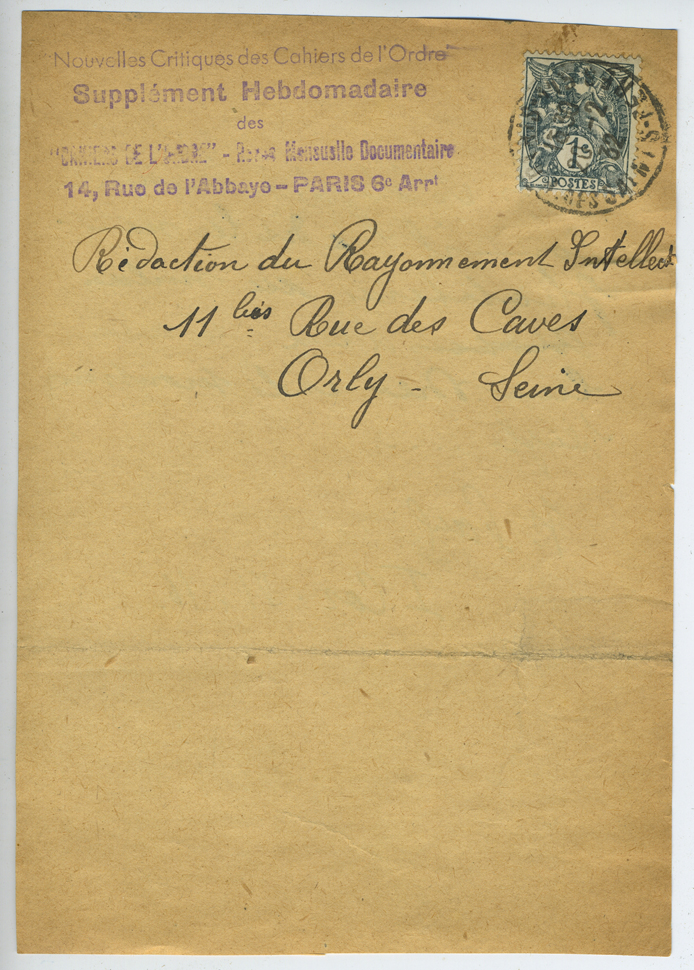 Nouvelles Critiques des Cahiers de l'Ordre
Supplément Hebdomadaire
des
"CAHIERS DE L'ORDRE" - Revue Mensuelle Documentaire
14, Rue de l'Abbaye - PARIS 6e Arrt
1c
POSTES
Rédaction du Rayonnement Intellect
11 bis Rue des Caves
Orly - Seine